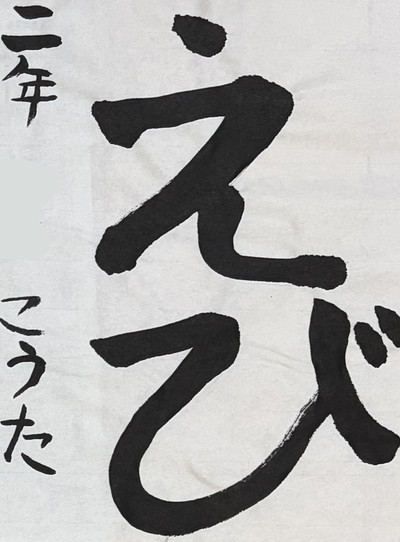 えび
二年
こうた